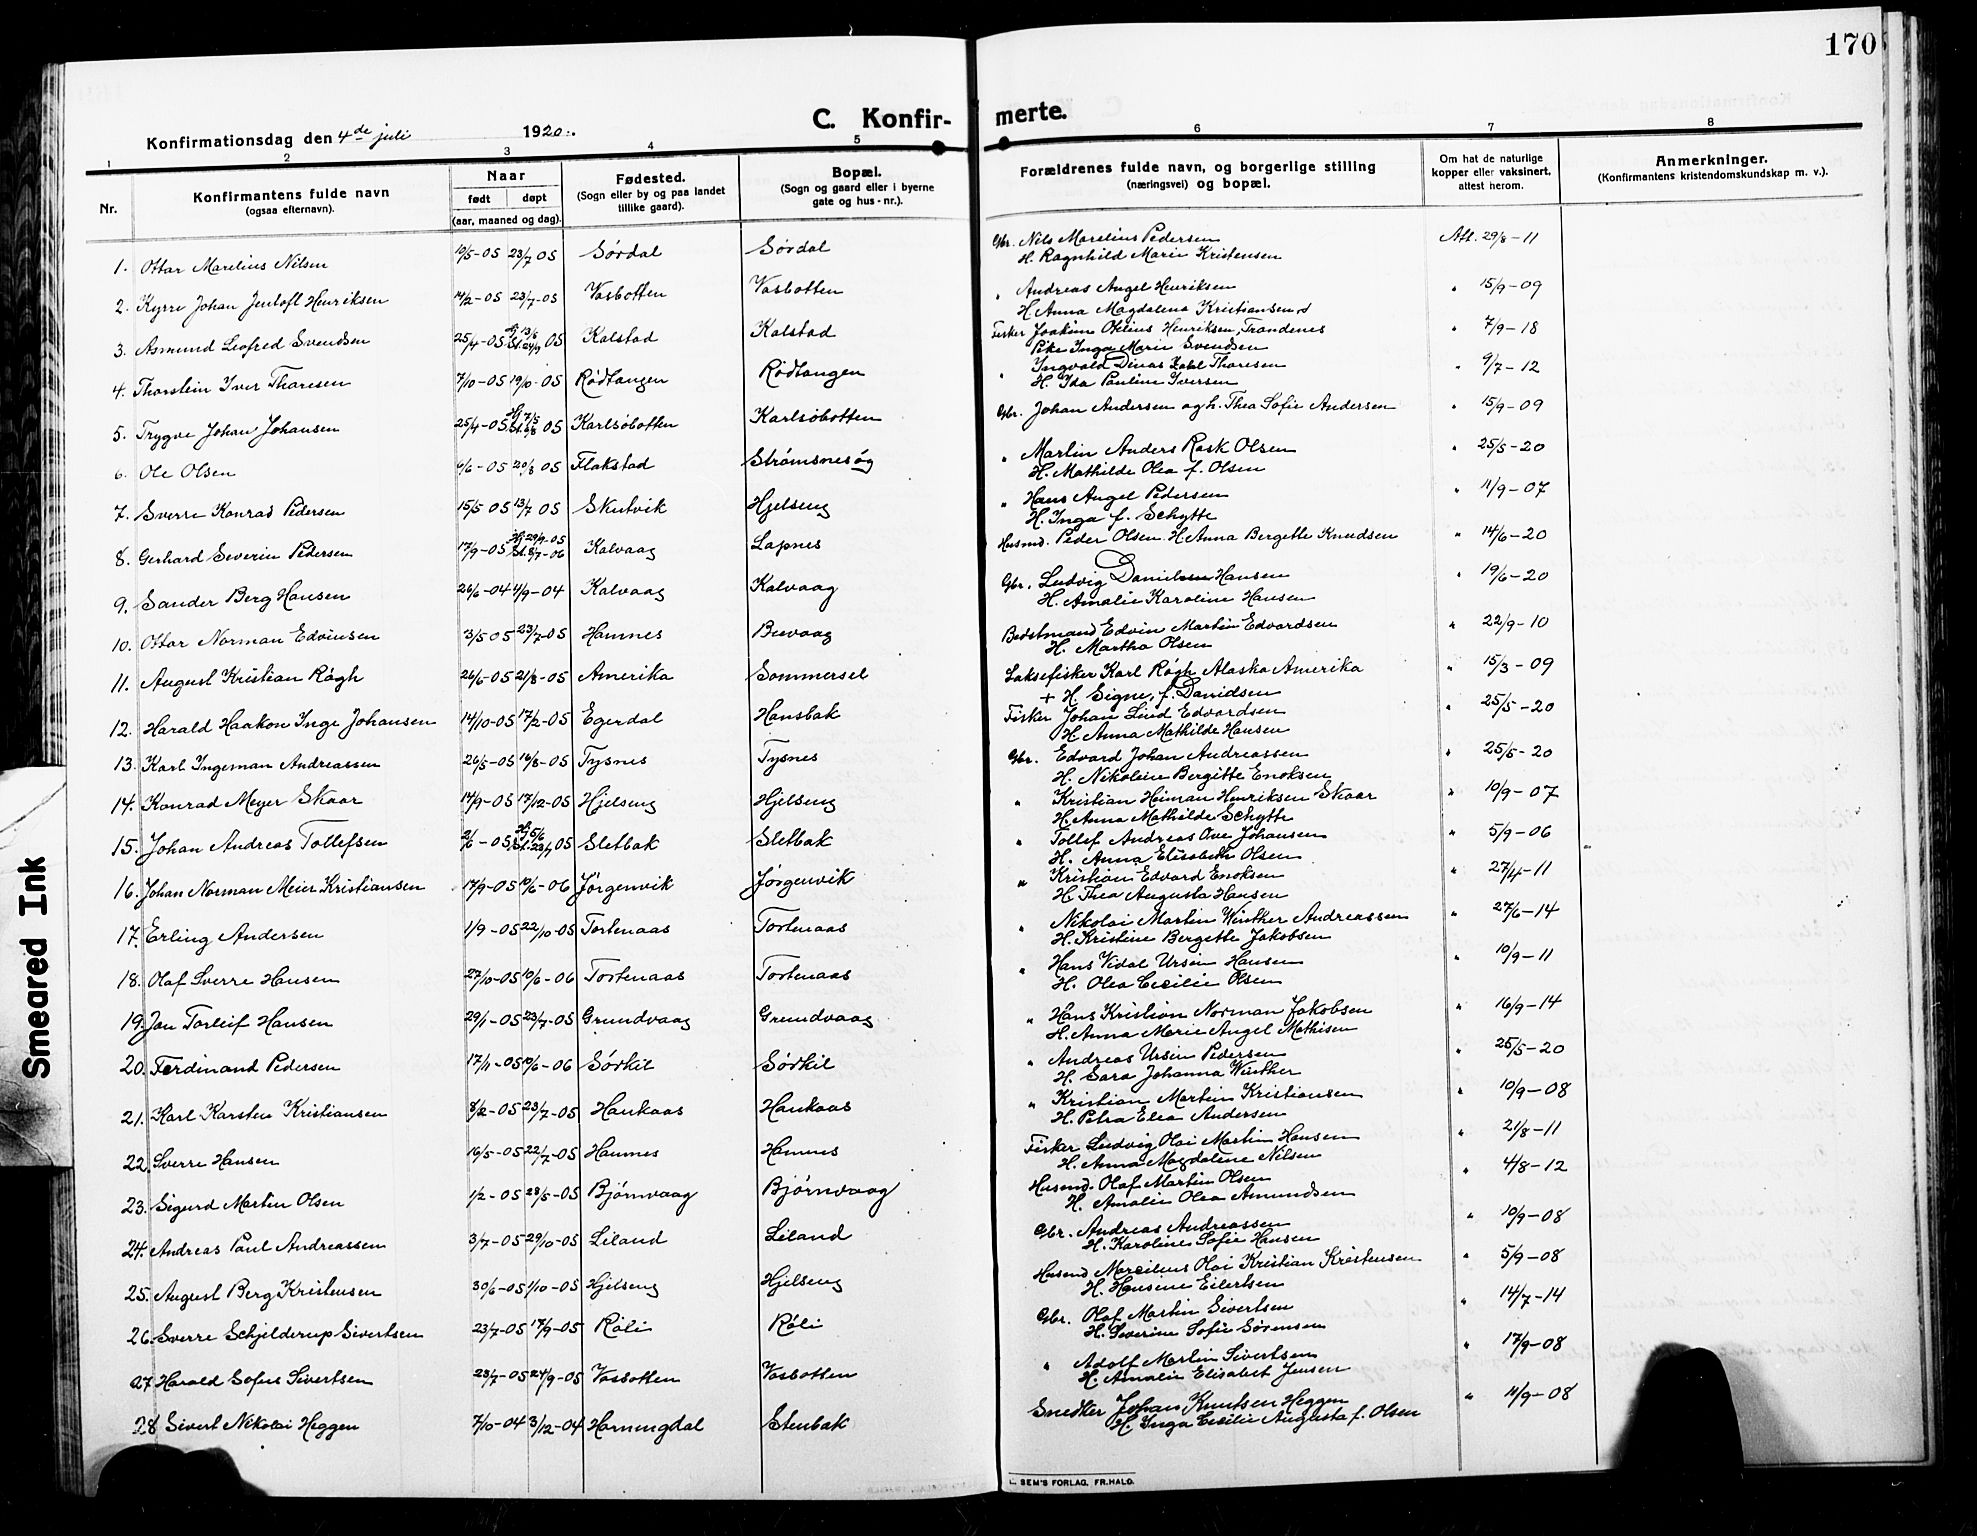 170
C. Konfirmerte.
Konfirmationsdag den 4de juli 1920.
1 2 3 4 5 6 7 8
Nr.
Konfirmantens fulde navn
(ogsaa efternavn).
Naar
født døpt
(aar, maaned og dag).
Fødested.
(Sogn eller by og paa landet
tillike gaard).
Bopæl.
(Sogn og gaard eller i byerne
gate og hus-nr.).
Forældrenes fulde navn, og borgerlige stilling
(næringsvei) og bopæl.
Om hat de naturlige
kopper eller vaksinert,
attest herom.
Anmerkninger.
(Konfirmantens kristendomskundskap m. v.).
1. Ottar Marelius Nilsen 19/5-05 23/7 05 Sørdal Sørdal Gbr. Nils Marelius Pedersen Att. 29/8-11
H. Ragnhild Marie Kristensen
2. Kyrre Johan Jentoft Henriksen 14/2-05 23/7-05 Vasbotten Vasbotten " Andreas Angel Henriksen " 15/9-09
H. Anna Magdalena Kristiansen
3. Asmund Leofred Svendsen 25/4-05 Kalstad Kalstad Fisker Joakim Otelius Henriksen, Trandenes " 7/9-18
Pike Inga Marie Svendsen
4. Thorstein Iver Thoresen 7/10-05 19/10-05 Rødtangen Rødtangen " Ingvald Dinas Zahl Thoresen " 9/7-12
H. Ida Pauline Iversen
5. Trygve Johan Johansen 25/4-05 Karlsøbotten Karlsøbotten Gbr. Johan Andersen og h. Thea Sofie Andersen " 15/9-09
6. Ole Olsen 6/6-05 20/8 05 Flakstad Strømsnesøg " Martin Anders Rask Olsen " 25/5-20
H. Mathilde Olea f. Olsen
7. Sverre Konrad Pedersen 15/5 05 13/7 05 Skutvik Hjelseng " Hans Angel Pedersen " 11/9-07
H. Inga f. Schytte
8. Gerhard Severin Pedersen 17/9-05 Kalvaag Lapnes Husmd. Peder Olsen H. Anna Bergette Knudsen " 14/6-20
9. Sander Berg Hansen 26/6-04 4/9-04 Kalvaag Kalvaag Gbr. Ludvig Danielsen Hansen " 19/6-20
H. Amalie Karoline Hansen
10. Ottar Norman Edvinsen 3/5 05 23/7-05 Hamnes Buvaag Bestmand Edvin Martin Edvardsen " 22/9-10
H. Martha Olsen
11. August Kristian Røgh 26/6-05 21/8-05 Amerika Sommersel Laksefisker Karl Røgh Alaska Amerika " 15/3-09
+ H Signe, f. Davidsen
12. Harald Haakon Inge Johansen 14/10-05 17/2-05 Egerdal Hansbak Fisker Johan Lind Edvardsen " 25/5-20
H. Anna Mathilde Hansen
13. Karl Ingeman Andreassen 26/5-05 16/8-05 Tysnes Tysnes Gbr. Edvard Johan Andreassen " 25/5-20
H. Nikoline Bergitte Enoksen
14. Konrad Meyer Skaar 14/9-05 17/12-05 Hjelseng Hjelseng " Kristian Heiman Henriksen Skaar " 10/9-07
H. Anna Mathilde Schytte
15. Johan Andreas Tollefsen 2/6-05 Sletbak Sletbak " Tollef Andreas Ove Johansen " 5/9-06
H. Anna Elisabeth Olsen
16. Johan Norman Meier Kristiansen 17/9-05 10/6-06 Jørgenvik Jørgenvik " Kristian Edvard Enoksen " 27/4-11
H. Thea Augusta Hansen
17. Erling Andersen 1/9-05 22/10-05 Tortenaas Tortenaas " Nikolai Martin Winther Andreassen " 27/6-14
H. Kristine Bergette Jakobsen
18. Olaf Sverre Hansen 27/10-05 10/6-06 Tortenaas Tortenaas " Hans Vidal Ursin Hansen " 10/9-11
H. Olea Cecilie Olsen
19. Jan Torleif Hansen 29/1-05 23/7-05 Grundvaag Grundvaag " Hans Kristian Norman Jakobsen " 16/9-14
H. Anna Marie Angel Mathisen
20. Ferdinand Pedersen 17/11-05 10/6-06 Sørkil Sørkil " Andreas Ursin Pedersen " 25/5-20
H. Sara Johanna Winther
21. Karl Karsten Kristiansen 8/2-05 23/7-05 Haukaas Haukaas " Kristian Martin Kristiansen " 10/9-08
H. Petra Elea Andersen
22. Sverre Hansen 16/5-05 22/7-05 Hamnes Hamnes Fisker Ludvig Olai Martin Hansen " 21/8-11
H. Anna Magdalene Nilsen
23. Sigurd Martin Olsen 1/2-05 28/5-05 Bjørnvaag Bjørnvaag Husmd. Olaf Martin Olsen " 4/8-12
H. Amalie Olea Amundsen
24. Andreas Paul Andreassen 3/7-05 29/10-05 Leland Leland Gbr. Andreas Andreassen " 10/9-08
H. Karoline Sofie Hansen
25. August Berg Kristensen 30/6-05 1/10-05 Hjelseng Hjelseng Husmd Marcilius Olai Kristian Kristensen " 5/9-08
H. Hansine Eilertsen
26. Sverre Schjelderup Sivertsen 23/7-05 17/9-05 Røli Røli Gbr. Olaf Martin Sivertsen " 14/7-14
H. Severine Sofie Sørensen
27 Harald Sofus Sivertsen 23/7-05 24/9-05 Vasbotten Vasbotten " Adolf Martin Sivertsen " 17/9-08
H. Amalie Elisabet Jensen
28 Sivert Nikolai Heggen 7/10-04 3/12-04 Hornningdal Stenbak Snedker Johan Knutsen Heggen " 11/9-08
H. Inga Cecilie Augusta f. Olsen
SEM'S FORLAG, FR.HALD.
Smeared Ink